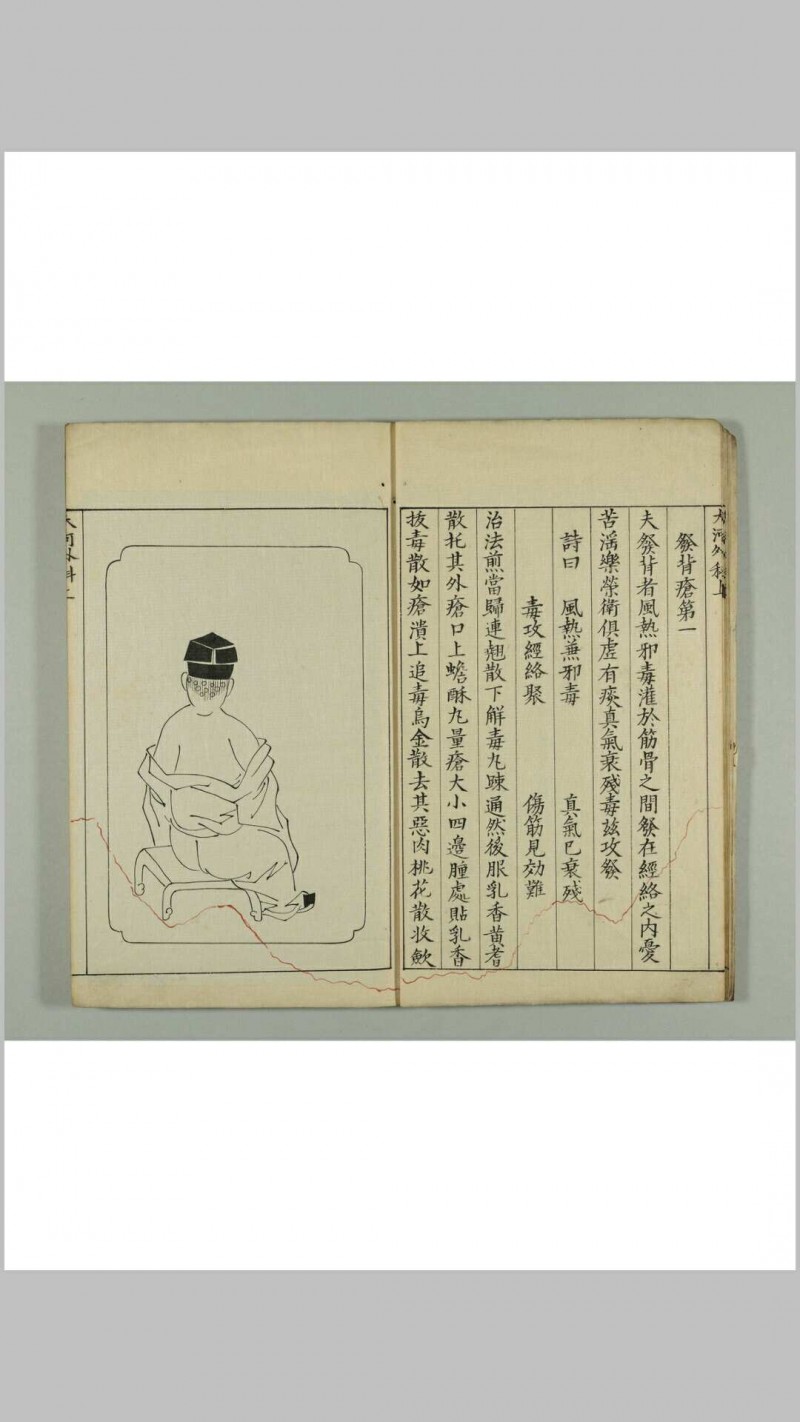 大河外科上
發背瘡第一
夫發背者風熱邪毒灌於筋骨之間發在經絡之內憂
苦滛樂榮衛俱虛有痰真氣衰殘毒玆攻發
詩曰　風熱兼邪毒　真氣已衰殘
毒攻經絡聚　傷筋見効難
治法煎當歸連翹散下解毒丸踈通然後服乳香黄耆
散托其外瘡口上蟾酥丸量瘡大小四邊腫處貼乳香
拔毒散如瘡潰上追毒烏金散去其惡肉桃花散收歛
大河外科上